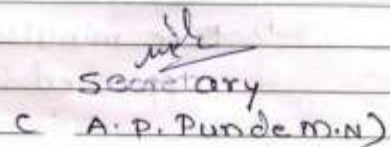 Secretary
( A.P. Punde M.N)